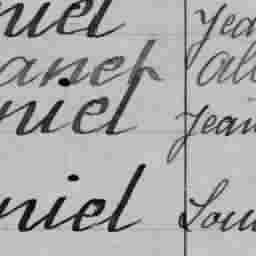 niel Jea
anet All
niel Jean
niel Lou